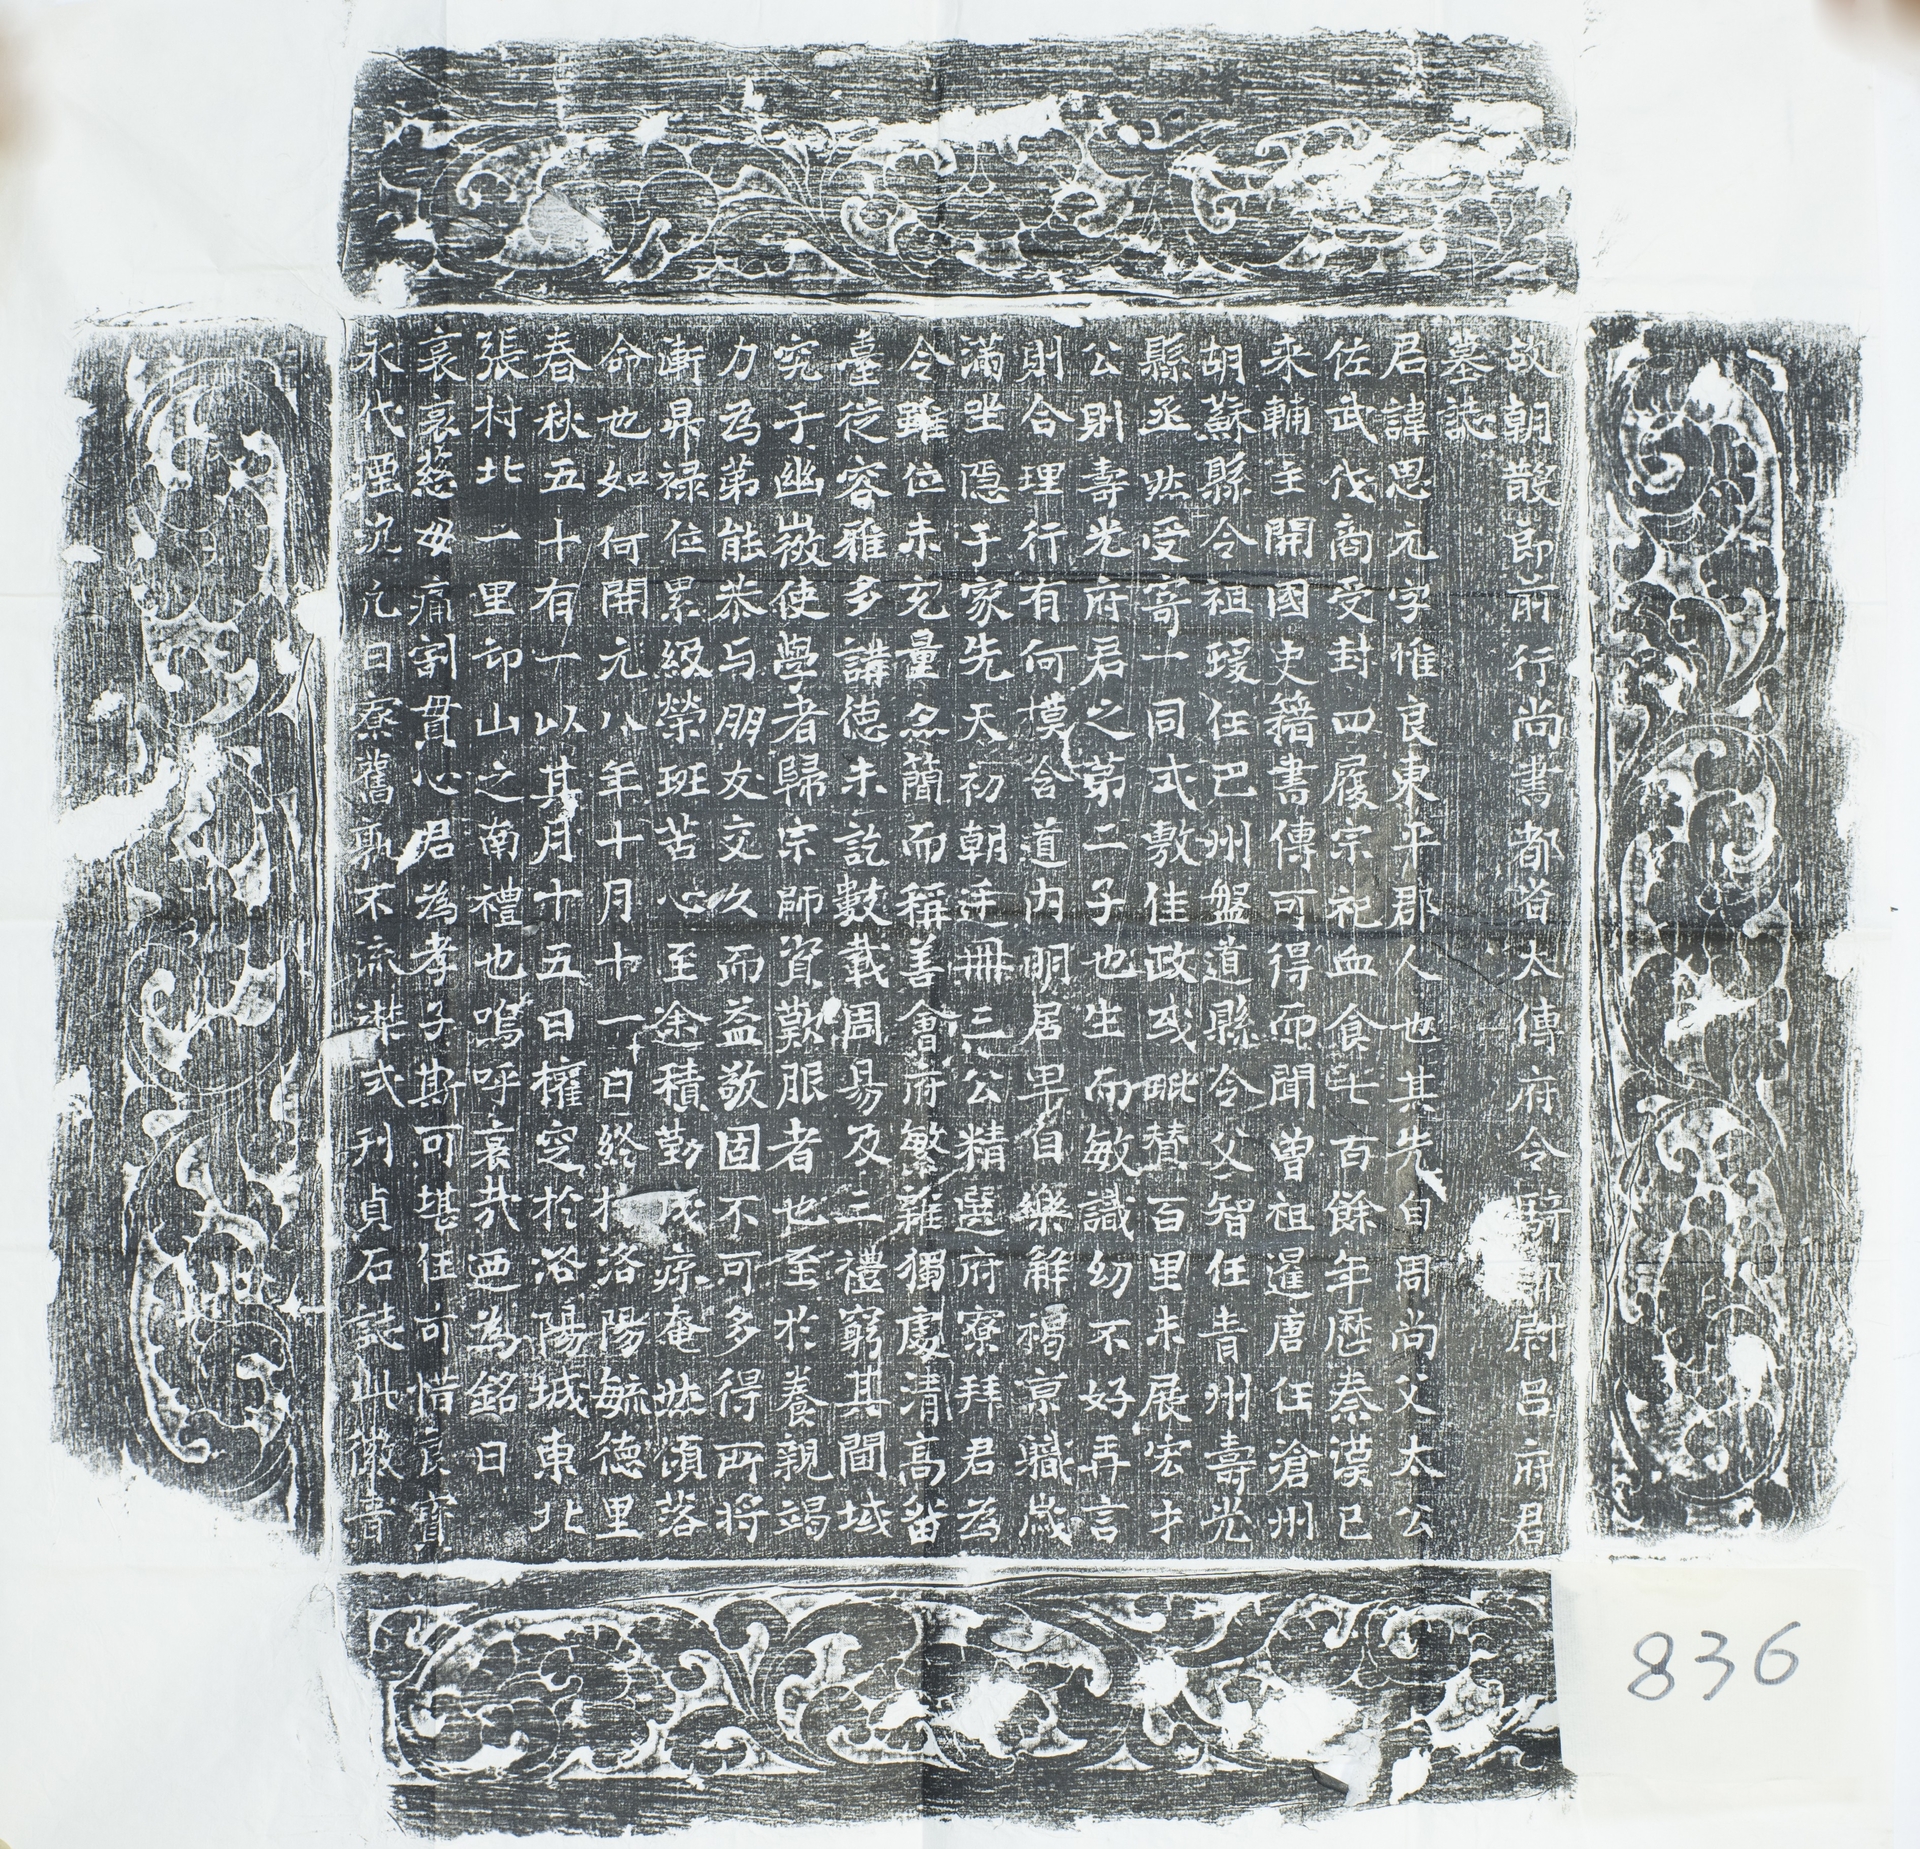 故朝散郎前行尚書都省太傅府令騎都尉呂府君
墓誌
君諱思元字惟良東平郡人也其先自周尚父太公
佐武伐商受封四履宗祀血食七百餘年歷秦漢已
来輔主開國史籍書傳可得而聞曾祖暹唐任滄州
胡蘇縣令祖瑗任巴州盤道縣令父智任青州壽光
縣丞然受寄一同式敷佳政或毗贊百里未展宏才
公則壽光府君之第二子也生而敏識幼不好弄言
則合理行有何摸含道內明居早自樂解褐京職歲
滿坐隱于家先天初朝廷冊三公精選府寮拜君為
令雖位未充量亦簡而稱善會府繁雜獨處清高留
臺從容雅多講德未訖數載周易及三禮窮其閫域
究于幽微使學者歸宗師資歎服者也至於養親竭
力為弟能恭与朋友交久而益敬固不可多得所將
漸昇祿位累級榮班苦心至余積勤成瘵奄然頌落
命也如何開元八年十月十一日終於洛陽毓德里
春秋五十有一以其月十五日權窆於洛陽城東北
張村北一里邙山之南禮也嗚呼哀哉迺為銘曰
哀哀慈母痛割貫心君為孝子斯可堪任可惜良寶
永代湮沉元日寮舊 不流襟式刊貞石誌此徽音
836